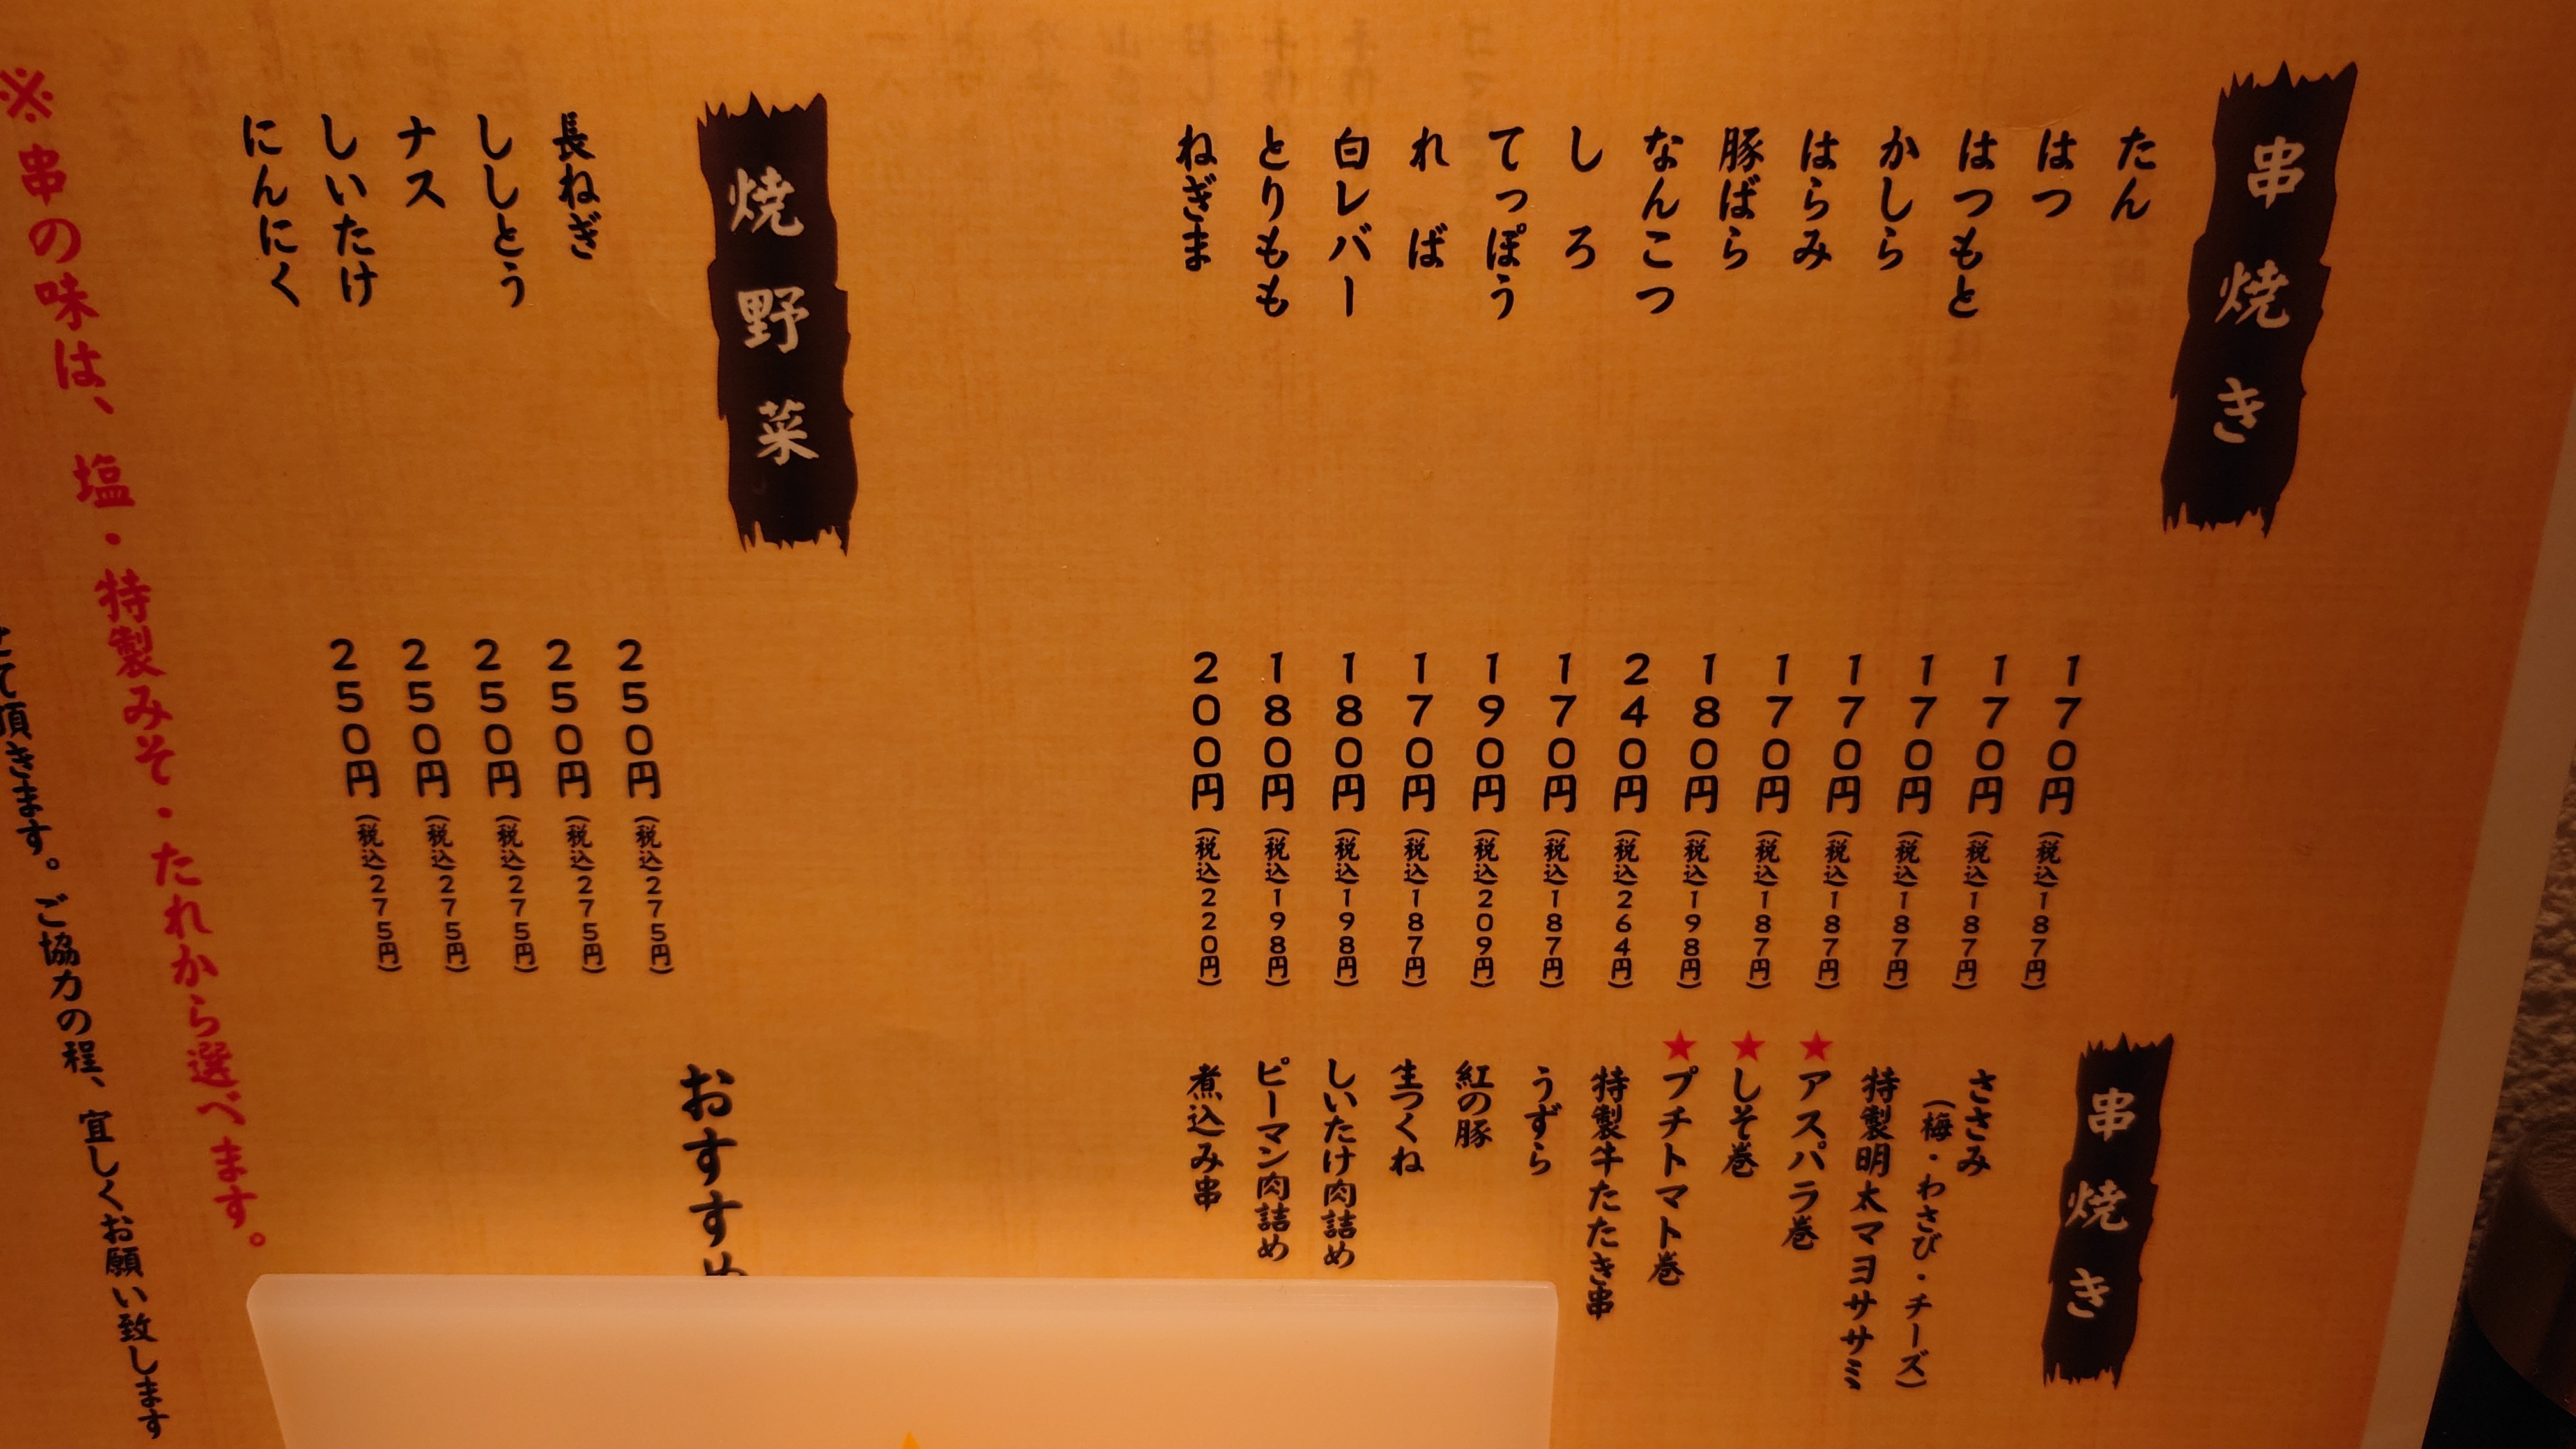 串焼き
たん 170円（税込187円）
はつ 170円（税込187円）
はつもと 170円（税込187円）
かしら 170円（税込187円）
はらみ 170円（税込187円）
豚ばら 180円（税込198円）
なんこつ 240円（税込264円）
しろ 170円（税込187円）
てっぽう 190円（税込209円）
れば 170円（税込187円）
白レバー 180円（税込198円）
とりもも 180円（税込198円）
ねぎま 200円（税込220円）
焼野菜
長ねぎ 250円（税込275円）
ししとう 250円（税込275円）
ナス 250円（税込275円）
しいたけ 250円（税込275円）
にんにく 250円（税込275円）
串焼き
ささみ
（梅・わさび・チーズ）
特製明太マヨササミ
★アスパラ巻
★しそ巻
★プチトマト巻
特製牛たたき串
うずら
紅の豚
生つくね
しいたけ肉詰め
ピーマン肉詰め
煮込み串
おすすめ
※串の味は、塩・特製みそ・たれから選べます。
て頂きます。ご協力の程、宜しくお願い致します